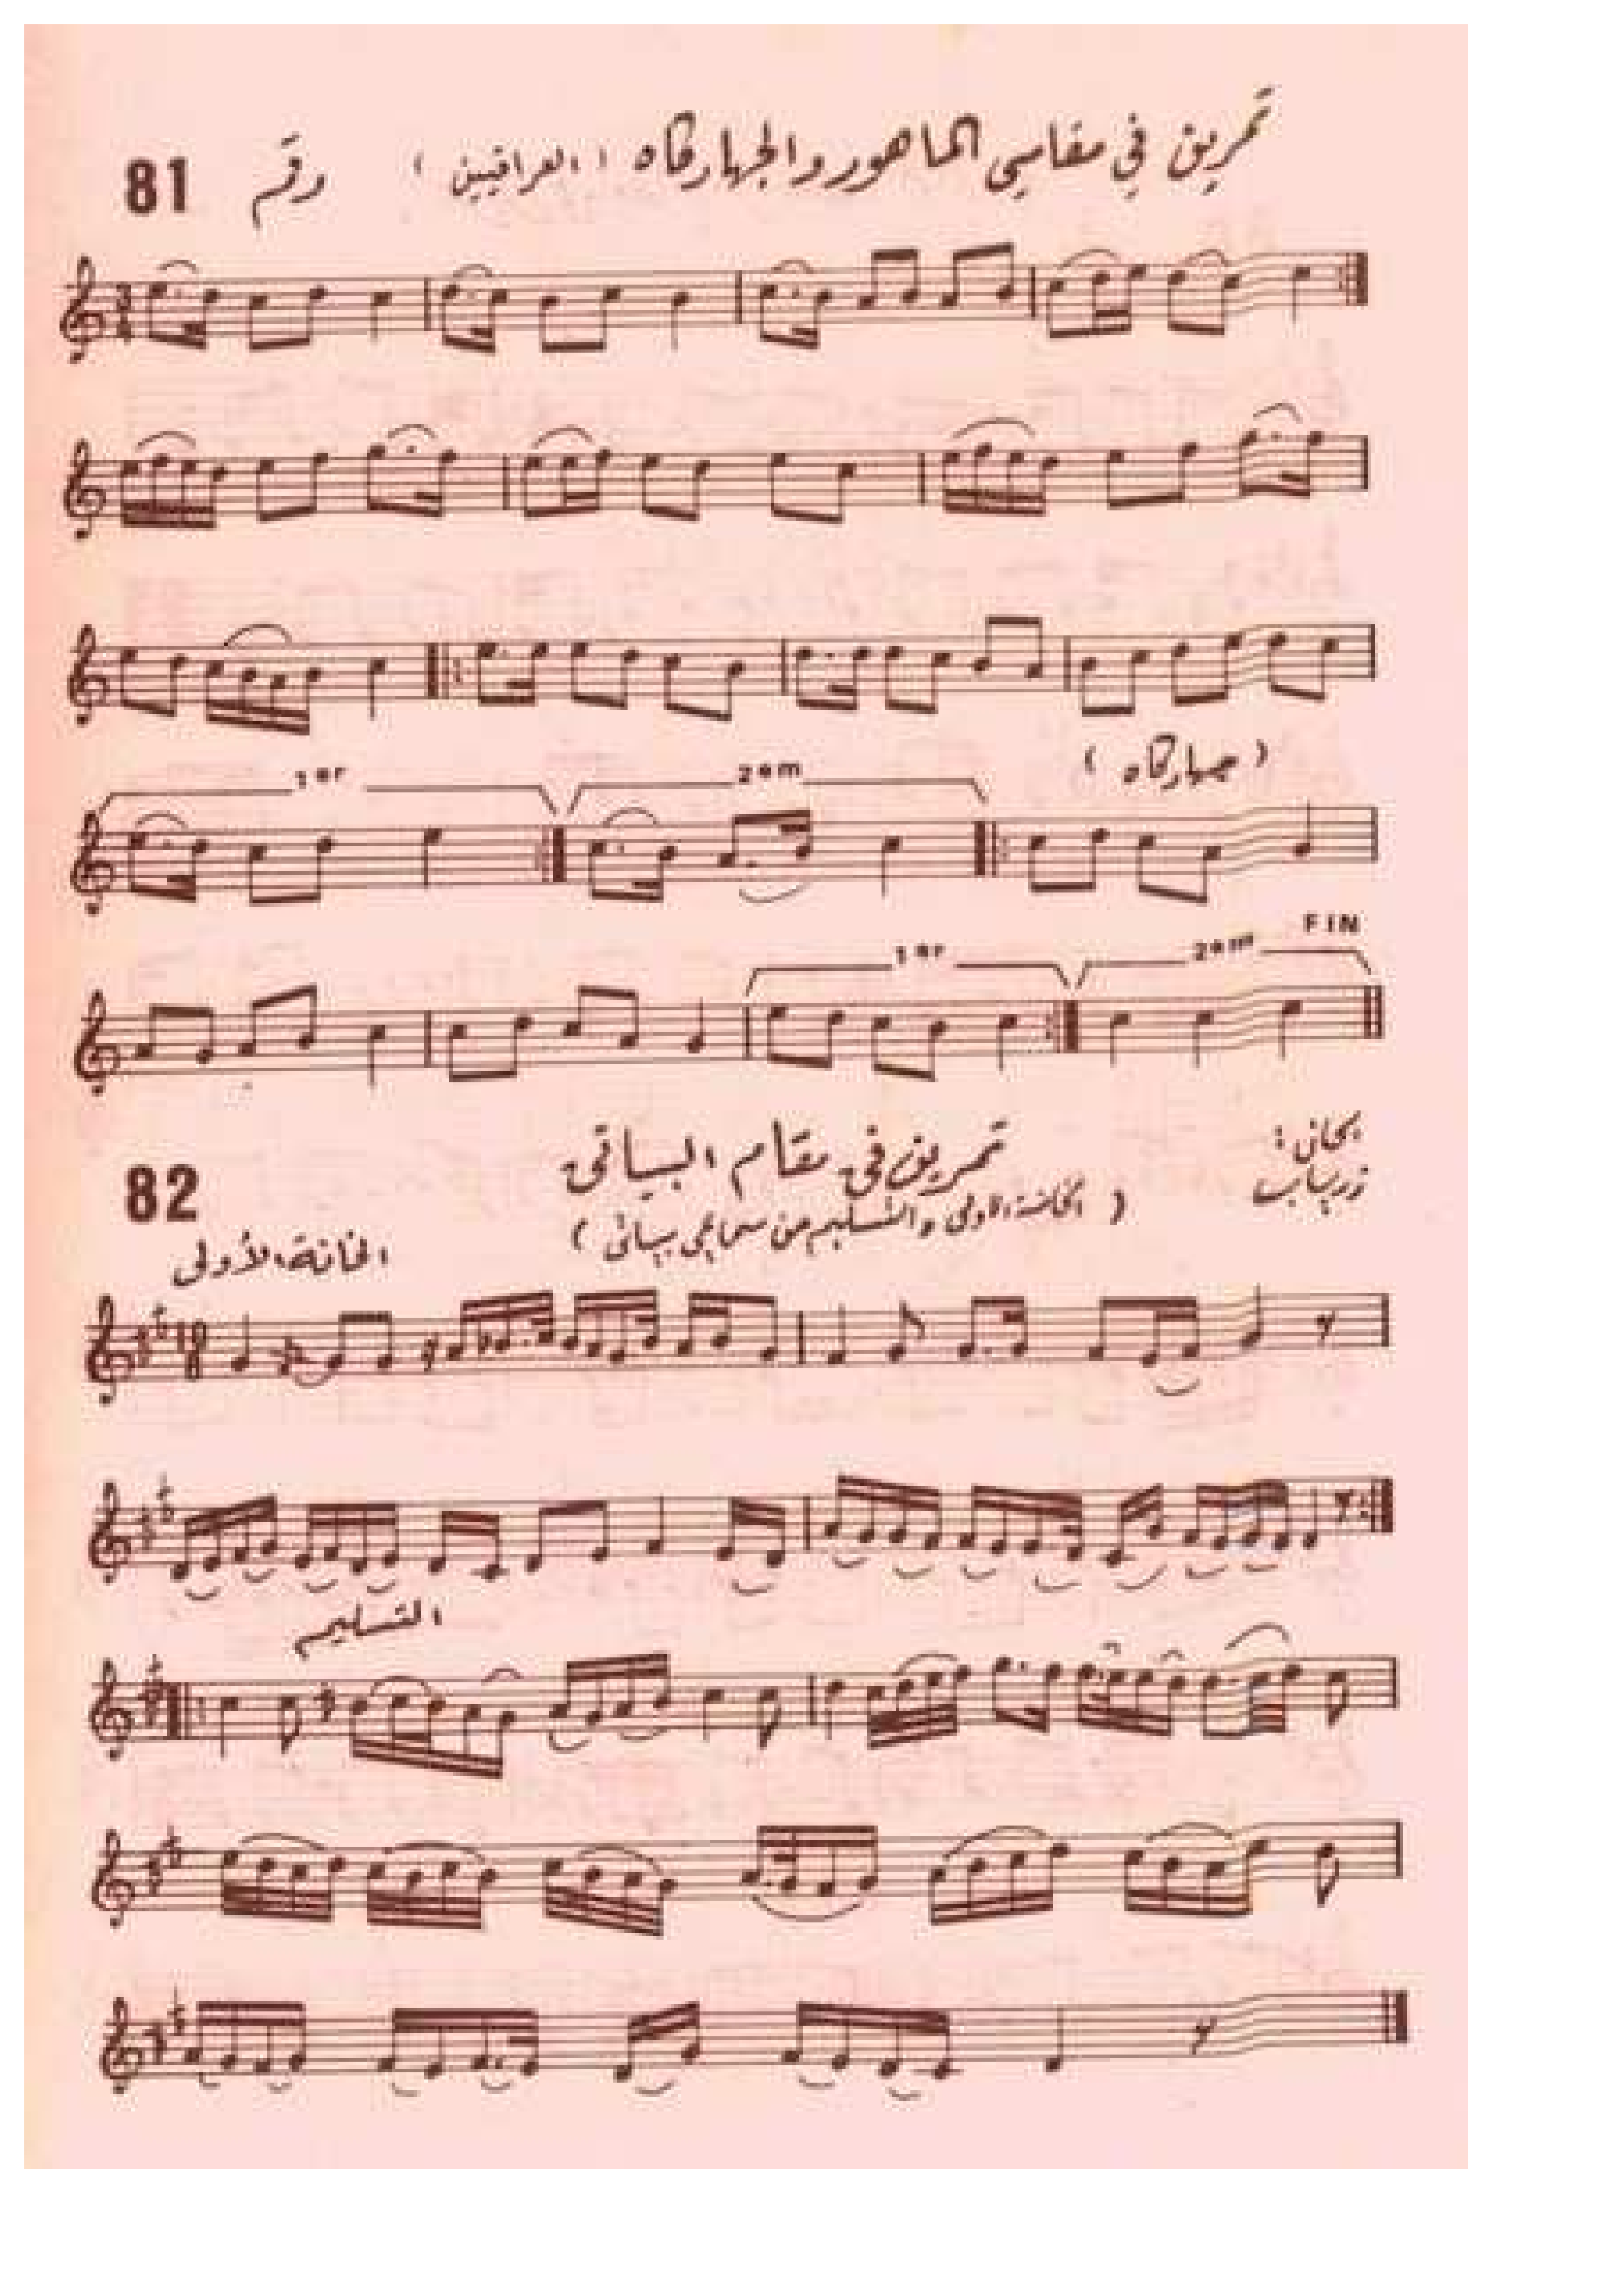 تمرين في مقامي الماهور والجهاركاه ( العراقيين ) رقم 81
( جهاركاه )
1er 2em
FIN
1er 2em
82 تمرين في مقام البياتي
( الخانة الاولى والتسليم من سماعي بياتي )
الخانة الأولى
التسليم